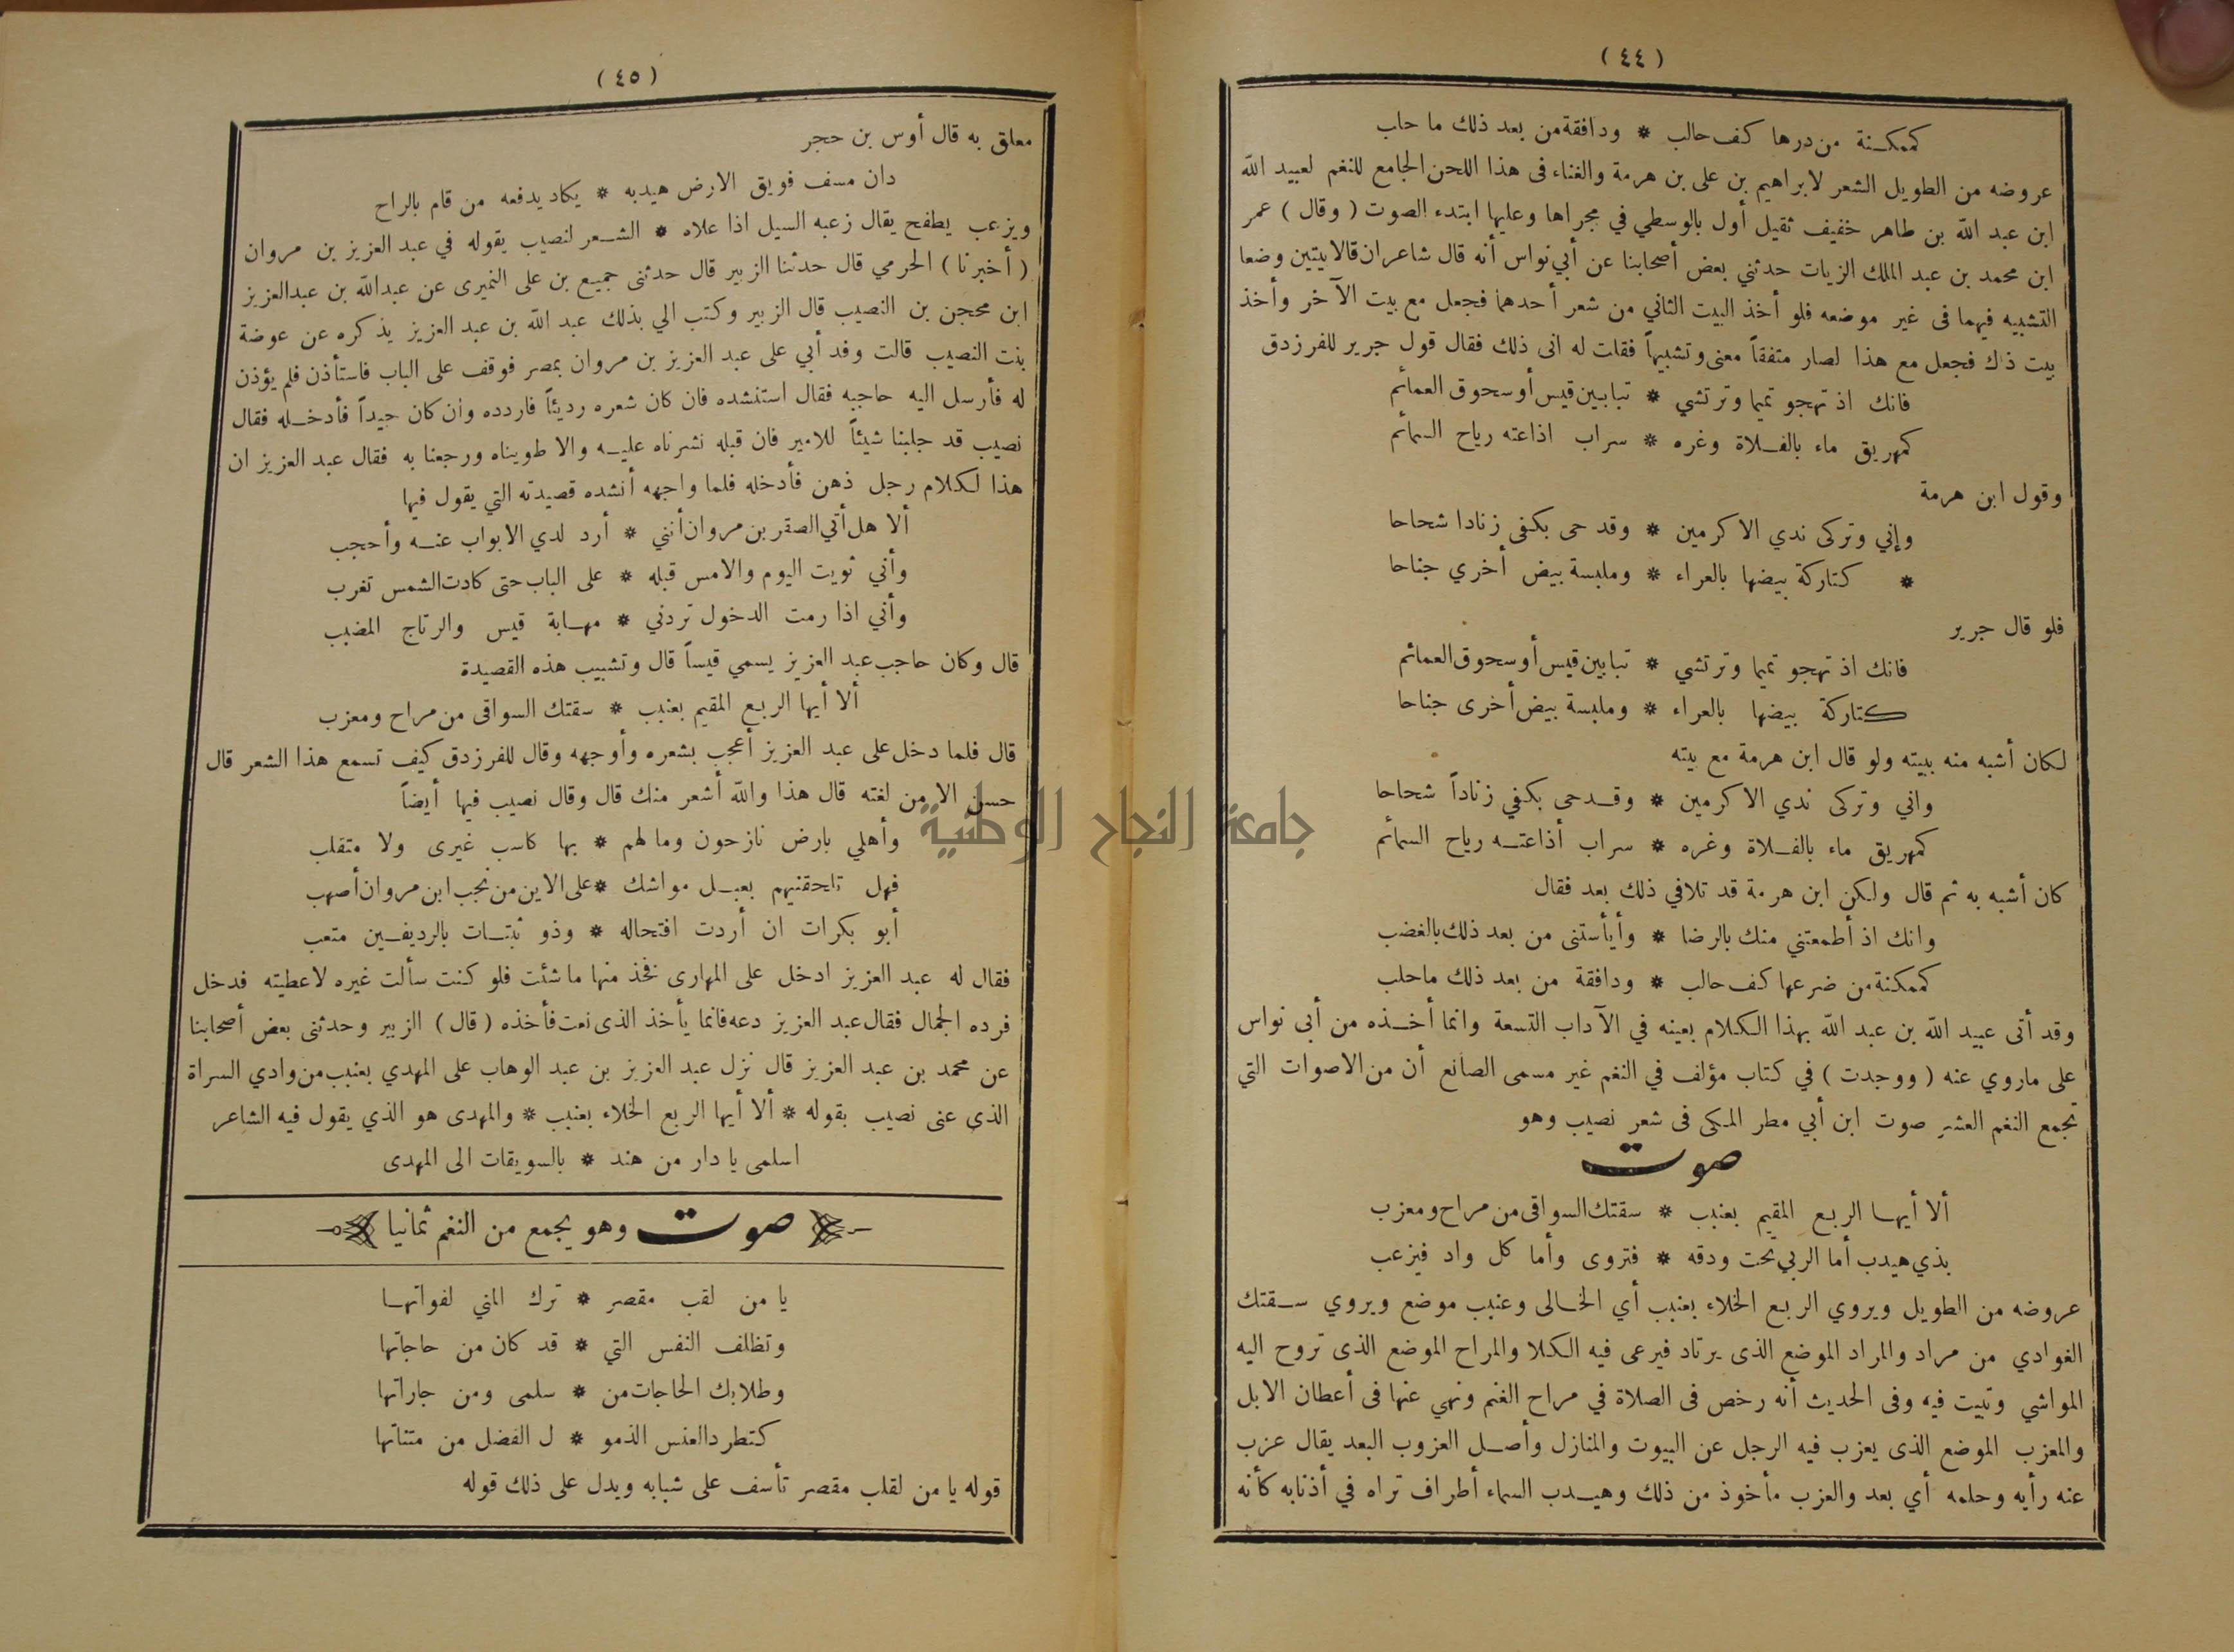 ( ٤٤ )
كممكنة من درها كف حالب * ودافقة من بعد ذلك ما حاب
عروضه من الطويل الشعر لابراهيم بن على بن هرمة والغناء فى هذا اللحن الجامع للنغم لعبيد الله
ابن عبد الله بن طاهر خفيف ثقيل أول بالوسطي في مجراها وعليها ابتدء الصوت ( وقال ) عمر
ابن محمد بن عبد الملك الزيات حدثني بعض أصحابنا عن أبي نواس أنه قال شاعران قالا بيتين وضعا
التشبيه فيهما فى غير موضعه فلو أخذ البيت الثاني من شعر أحدهما فجعل مع بيت الآخر وأخذ
بيت ذاك فجعل مع هذا لصار متفقاً معنى وتشبيهاً فقلت له انى ذلك فقال قول جرير للفرزدق
فانك اذ تهجو تميما وترتشي * تبابين قيس أو سحوق العمائم
كمهريق ماء بالفلاة وغره * سراب اذاعته رياح السمائم
وقول ابن هرمة
وإني وتركى ندي الاكرمين * وقدحى بكفى زنادا شحاحا
* كتاركة بيضها بالعراء * وملبسة بيض أخري جناحا
فلو قال جرير
فانك اذ تهجو تميما وترتشي * تبابين قيس أو سحوق العمائم
كتاركة بيضها بالعراء * وملبسة بيض أخرى جناحا
لكان أشبه منه ببيته ولو قال ابن هرمة مع بيته
واني وتركى ندي الاكرمين * وقدحى بكفي زناداً شحاحا
كمهريق ماء بالفلاة وغره * سراب أذاعته رياح السمائم
كان أشبه به ثم قال ولكن ابن هرمة قد تلافي ذلك بعد فقال
وانك اذ أطمعتني منك بالرضا * وأيأستنى من بعد ذلك بالغضب
كممكنة من ضرعها كف حالب * ودافقة من بعد ذلك ما حلب
وقد أتى عبيد الله بن عبد الله بهذا الكلام بعينه في الآداب التسعة وانما أخذه من أبى نواس
على ماروي عنه ( ووجدت ) في كتاب مؤلف في النغم غير مسمى الصانع أن من الاصوات التي
تجمع النغم العشر صوت ابن أبي مطر المكى فى شعر نصيب وهو
صوت
ألا أيها الربع المقيم بعنبب * سقتك السواقى من مراح ومعزب
بذي هيدب أما الربي تحت ودقه * فتروى وأما كل واد فيزعب
عروضه من الطويل ويروي الربع الخلاء بعنبب أي الخالى وعنبب موضع ويروي سقتك
الغوادي من مراد والمراد الموضع الذى يرتاد فيرعى فيه الكلا والمراح الموضع الذى تروح اليه
المواشي وتبيت فيه وفى الحديث أنه رخص فى الصلاة في مراح الغنم ونهي عنها فى أعطان الابل
والمعزب الموضع الذى يعزب فيه الرجل عن البيوت والمنازل وأصل العزوب البعد يقال عزب
عنه رأيه وحلمه أي بعد والعزب مأخوذ من ذلك وهيدب السماء أطراف تراه في أذنابه كأنه
( ٤٥ )
معلق به قال أوس بن حجر
دان مسف فويق الارض هيدبه * يكاد يدفعه من قام بالراح
ويزعب يطفح يقال زعبه السيل اذا علاه * الشعر لنصيب يقوله في عبد العزيز بن مروان
( أخبرنا ) الحرمي قال حدثنا الزبير قال حدثنى جميع بن على النميرى عن عبدالله بن عبدالعزيز
ابن محجن بن النصيب قال الزبير وكتب الي بذلك عبد الله بن عبد العزيز يذكره عن عوضة
بنت النصيب قالت وفد أبي على عبد العزيز بن مروان بمصر فوقف على الباب فاستأذن فلم يؤذن
له فأرسل اليه حاجبه فقال استنشده فان كان شعره رديئاً فاردده وان كان جيداً فأدخله فقال
نصيب قد جلبنا شيئاً للامير فان قبله نشرناه عليه والا طويناه ورجعنا به فقال عبد العزيز ان
هذا لكلام رجل ذهن فأدخله فلما واجهه أنشده قصيدته التي يقول فيها
ألا هل أتي الصقر بن مروان أنني * أرد لدي الابواب عنه وأحجب
وأني ثويت اليوم والامس قبله * على الباب حتى كادت الشمس تغرب
وأني اذا رمت الدخول تردني * مهابة قيس والرتاج المضبب
قال وكان حاجب عبد العزيز يسمي قيساً قال وتشبيب هذه القصيدة
ألا أيها الربع المقيم بعنبب * سقتك السواقى من مراح ومعزب
قال فلما دخل على عبد العزيز أعجب بشعره وأوجهه وقال للفرزدق كيف تسمع هذا الشعر قال
حسن الا من لغته قال هذا والله أشعر منك قال وقال نصيب فيها أيضاً
وأهلي بارض نازحون وما لهم * بها كاسب غيرى ولا متقلب
فهل تلحقنيهم بعبل مواشك * على الاين من نجب ابن مروان أصهب
أبو بكرات ان أردت افتحاله * وذو ثبتات بالرديفين متعب
فقال له عبد العزيز ادخل على المهارى فخذ منها ما شئت فلو كنت سألت غيره لاعطيته فدخل
فرده الجمال فقال عبد العزيز دعه فانما يأخذ الذى نعت فأخذه ( قال ) الزبير وحدثنى بعض أصحابنا
عن محمد بن عبد العزيز قال نزل عبد العزيز بن عبد الوهاب على المهدي بعنبب من وادي السراة
الذى عنى نصيب بقوله * ألا أيها الربع الخلاء بعنبب * والمهدى هو الذي يقول فيه الشاعر
اسلمى يا دار من هند * بالسويقات الى المهدى
صوت وهو يجمع من النغم ثمانيا
يا من لقب مقصر * ترك المني لفواتها
وتظلف النفس التي * قد كان من حاجاتها
وطلابك الحاجات من * سلمى ومن جاراتها
كتطرد العنس الذمو * ل الفضل من مثناتها
قوله يا من لقلب مقصر تأسف على شبابه ويدل على ذلك قوله
جامعة النجاح الوطنية